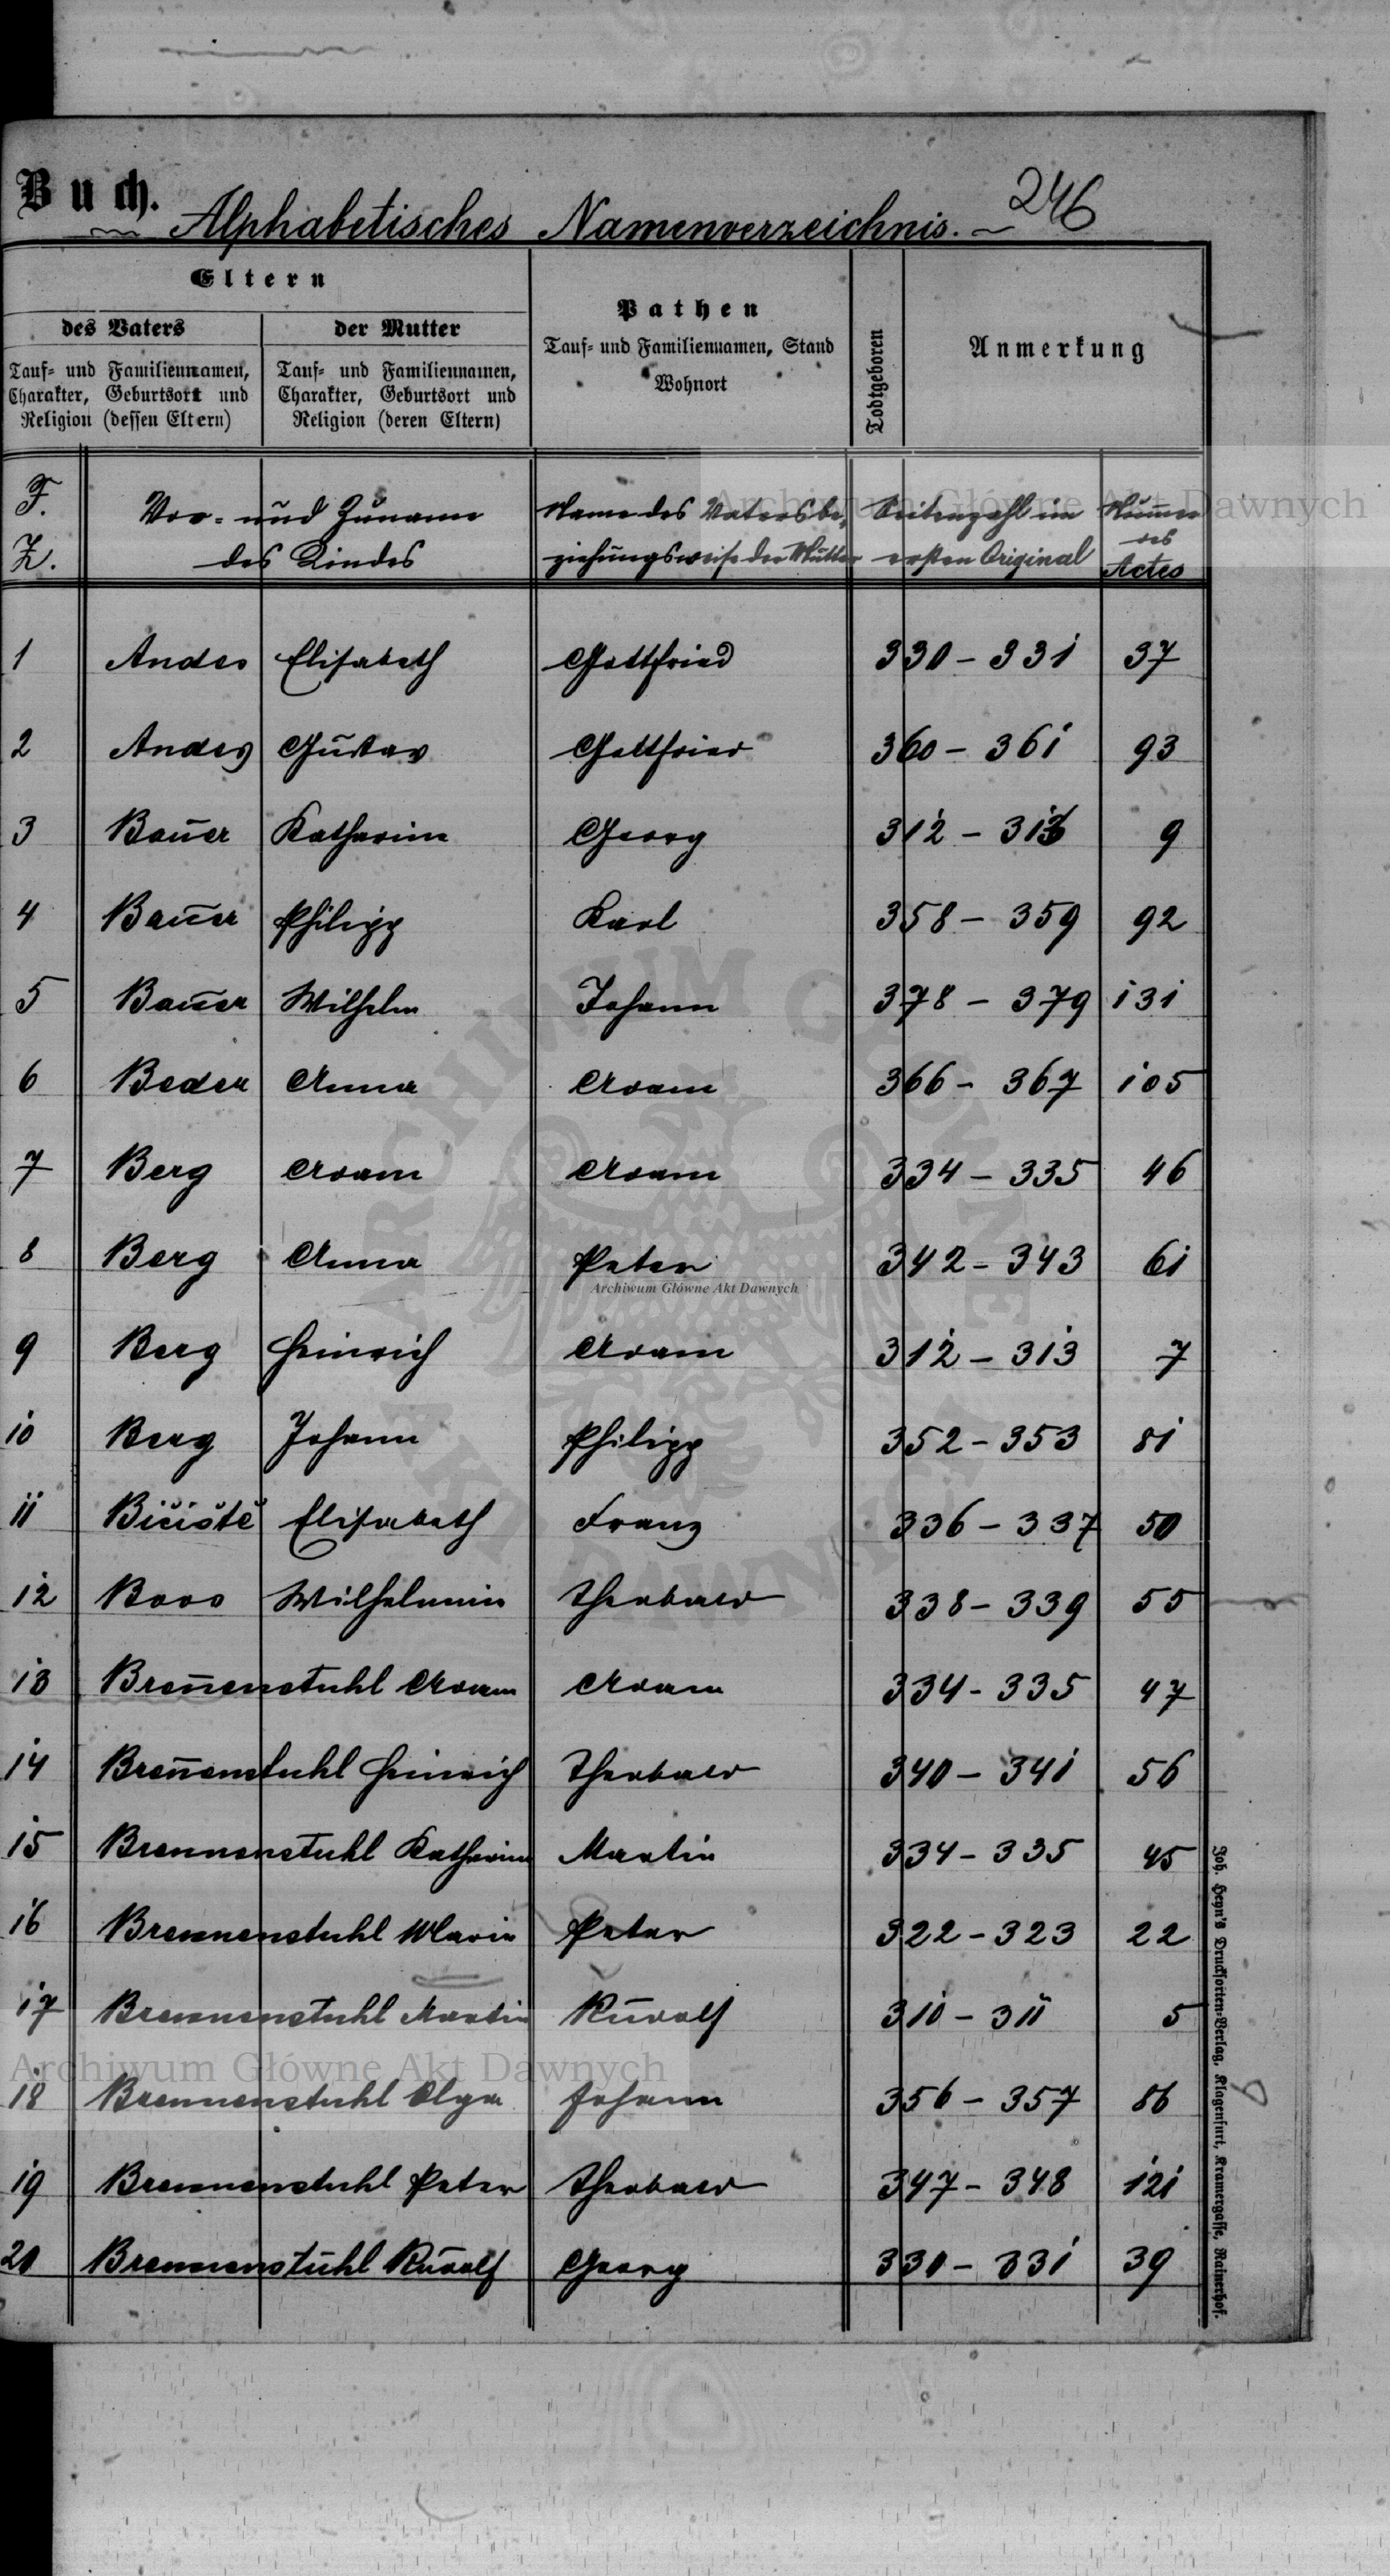 Buch.
Alphabetisches Namenverzeichnis.
246
Eltern
des Vaters
der Mutter
Tauf- und Familiennamen,
Charakter, Geburtsort und
Religion (dessen Eltern)
Tauf- und Familiennamen,
Charakter, Geburtsort und
Religion (deren Eltern)
Pathen
Tauf- und Familiennamen, Stand
Wohnort
Todtgeboren
Anmerkung
F.
Z.
Vor- und Zuname
des Kindes
Name des Vaters be-
ziehungsweise der Mutter
Seitenzahl im
ersten Original
Numer
des
Actes
1 Andes Elisabeth Gottfried 330 - 331 37
2 Andes Gustav Gottfried 360 - 361 93
3 Bauer Katharina Georg 312 - 313 9
4 Bauer Philipp Karl 358 - 359 92
5 Bauer Wilhelm Johann 378 - 379 131
6 Beder Anna Adam 366 - 367 105
7 Berg Adam Adam 334 - 335 46
8 Berg Anna Peter 342 - 343 61
9 Berg Heinrich Adam 312 - 313 7
10 Berg Johann Philipp 352 - 353 81
11 Bičiště Elisabeth Franz 336 - 337 50
12 Boos Wilhelmin Theobald 338 - 339 55
13 Breñenstuhl Adam Adam 334 - 335 47
14 Breñenstuhl Heinrich Theobald 340 - 341 56
15 Brennenstuhl Katharina Martin 334 - 335 45
16 Brennenstuhl Maria Peter 322 - 323 22
17 Brennenstuhl Martin Rudolf 310 - 311 5
18 Brennenstuhl Olga Johann 356 - 357 86
19 Brennenstuhl Peter Theobald 347 - 348 121
20 Brennenstuhl Rudolf Georg 330 - 331 39
Joh. Heyn's Drucksorten-Verlag, Klagenfurt, Kramergasse, Rainerhof.
Archiwum Główne Akt Dawnych
Archiwum Główne Akt Dawnych
Archiwum Główne Akt Dawnych
ARCHIWUM GŁÓWNE AKT DAWNYCH